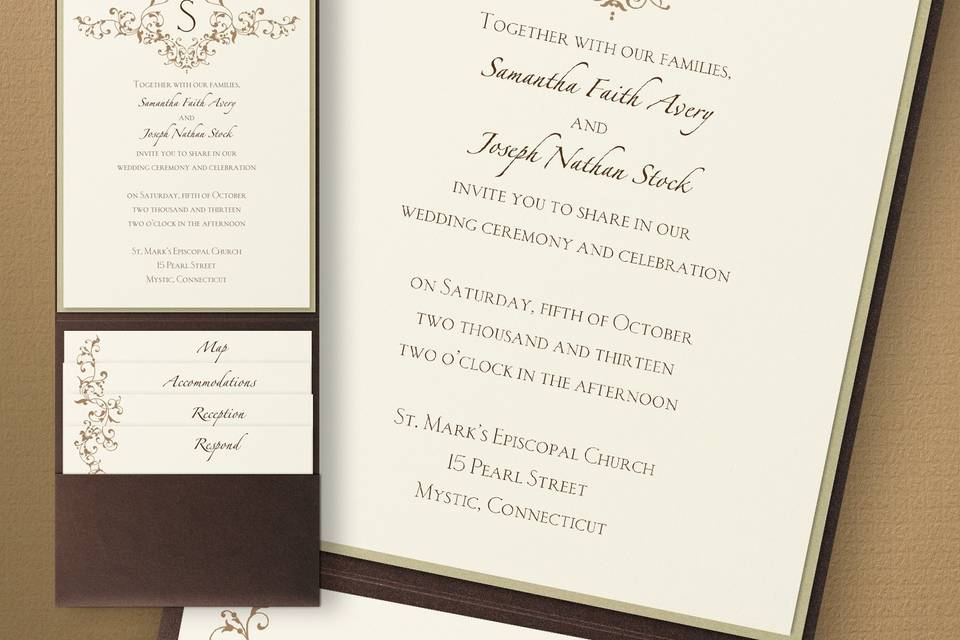 S
Together with our families,
Samantha Faith Avery
and
Joseph Nathan Stock
invite you to share in our
wedding ceremony and celebration
on Saturday, fifth of October
two thousand and thirteen
two o'clock in the afternoon
St. Mark's Episcopal Church
15 Pearl Street
Mystic, Connecticut
Map
Accommodations
Reception
Respond
Together with our families,
Samantha Faith Avery
and
Joseph Nathan Stock
invite you to share in our
wedding ceremony and celebration
on Saturday, fifth of October
two thousand and thirteen
two o'clock in the afternoon
St. Mark's Episcopal Church
15 Pearl Street
Mystic, Connecticut